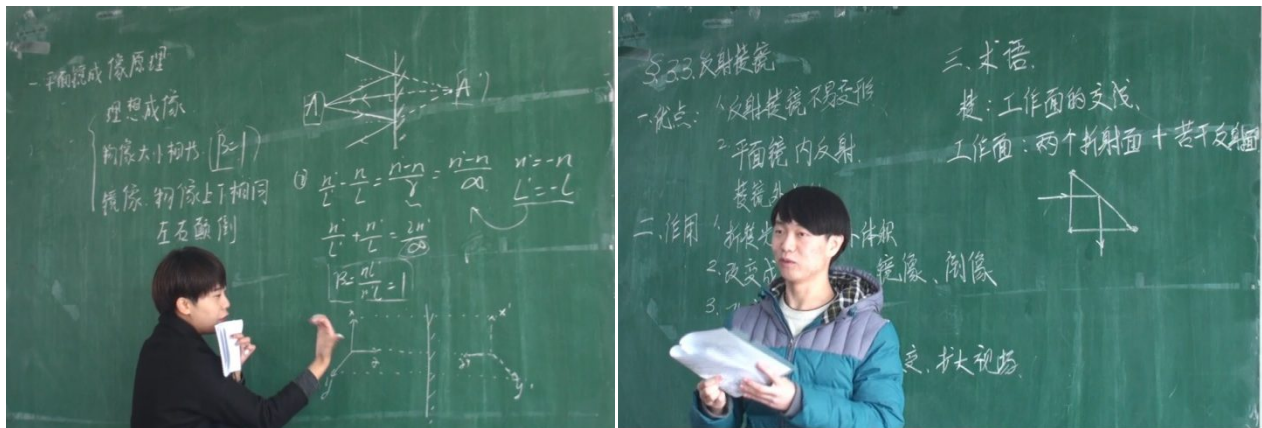 一.平面镜成像原理
理想成像
物像大小相等 (β=1)
镜像:物像上下相同
左右颠倒
A A'
① n'/L' - n/L = n'-n/r = n'-n/∞
n'=-n
L'=-L
n'/L' + n'/L = 2n'/∞
β = nl'/n'l = 1
x x'
y z z' y'
§3.3.反射棱镜
一.优点: 1.反射棱镜不易变形
2.平面镜内反射.
棱镜
二.作用 1.折转光 体积
2.改变成 镜像、倒像
3.
变,扩大视场.
三.术语.
棱:工作面的交线.
工作面:两个折射面+若干反射面